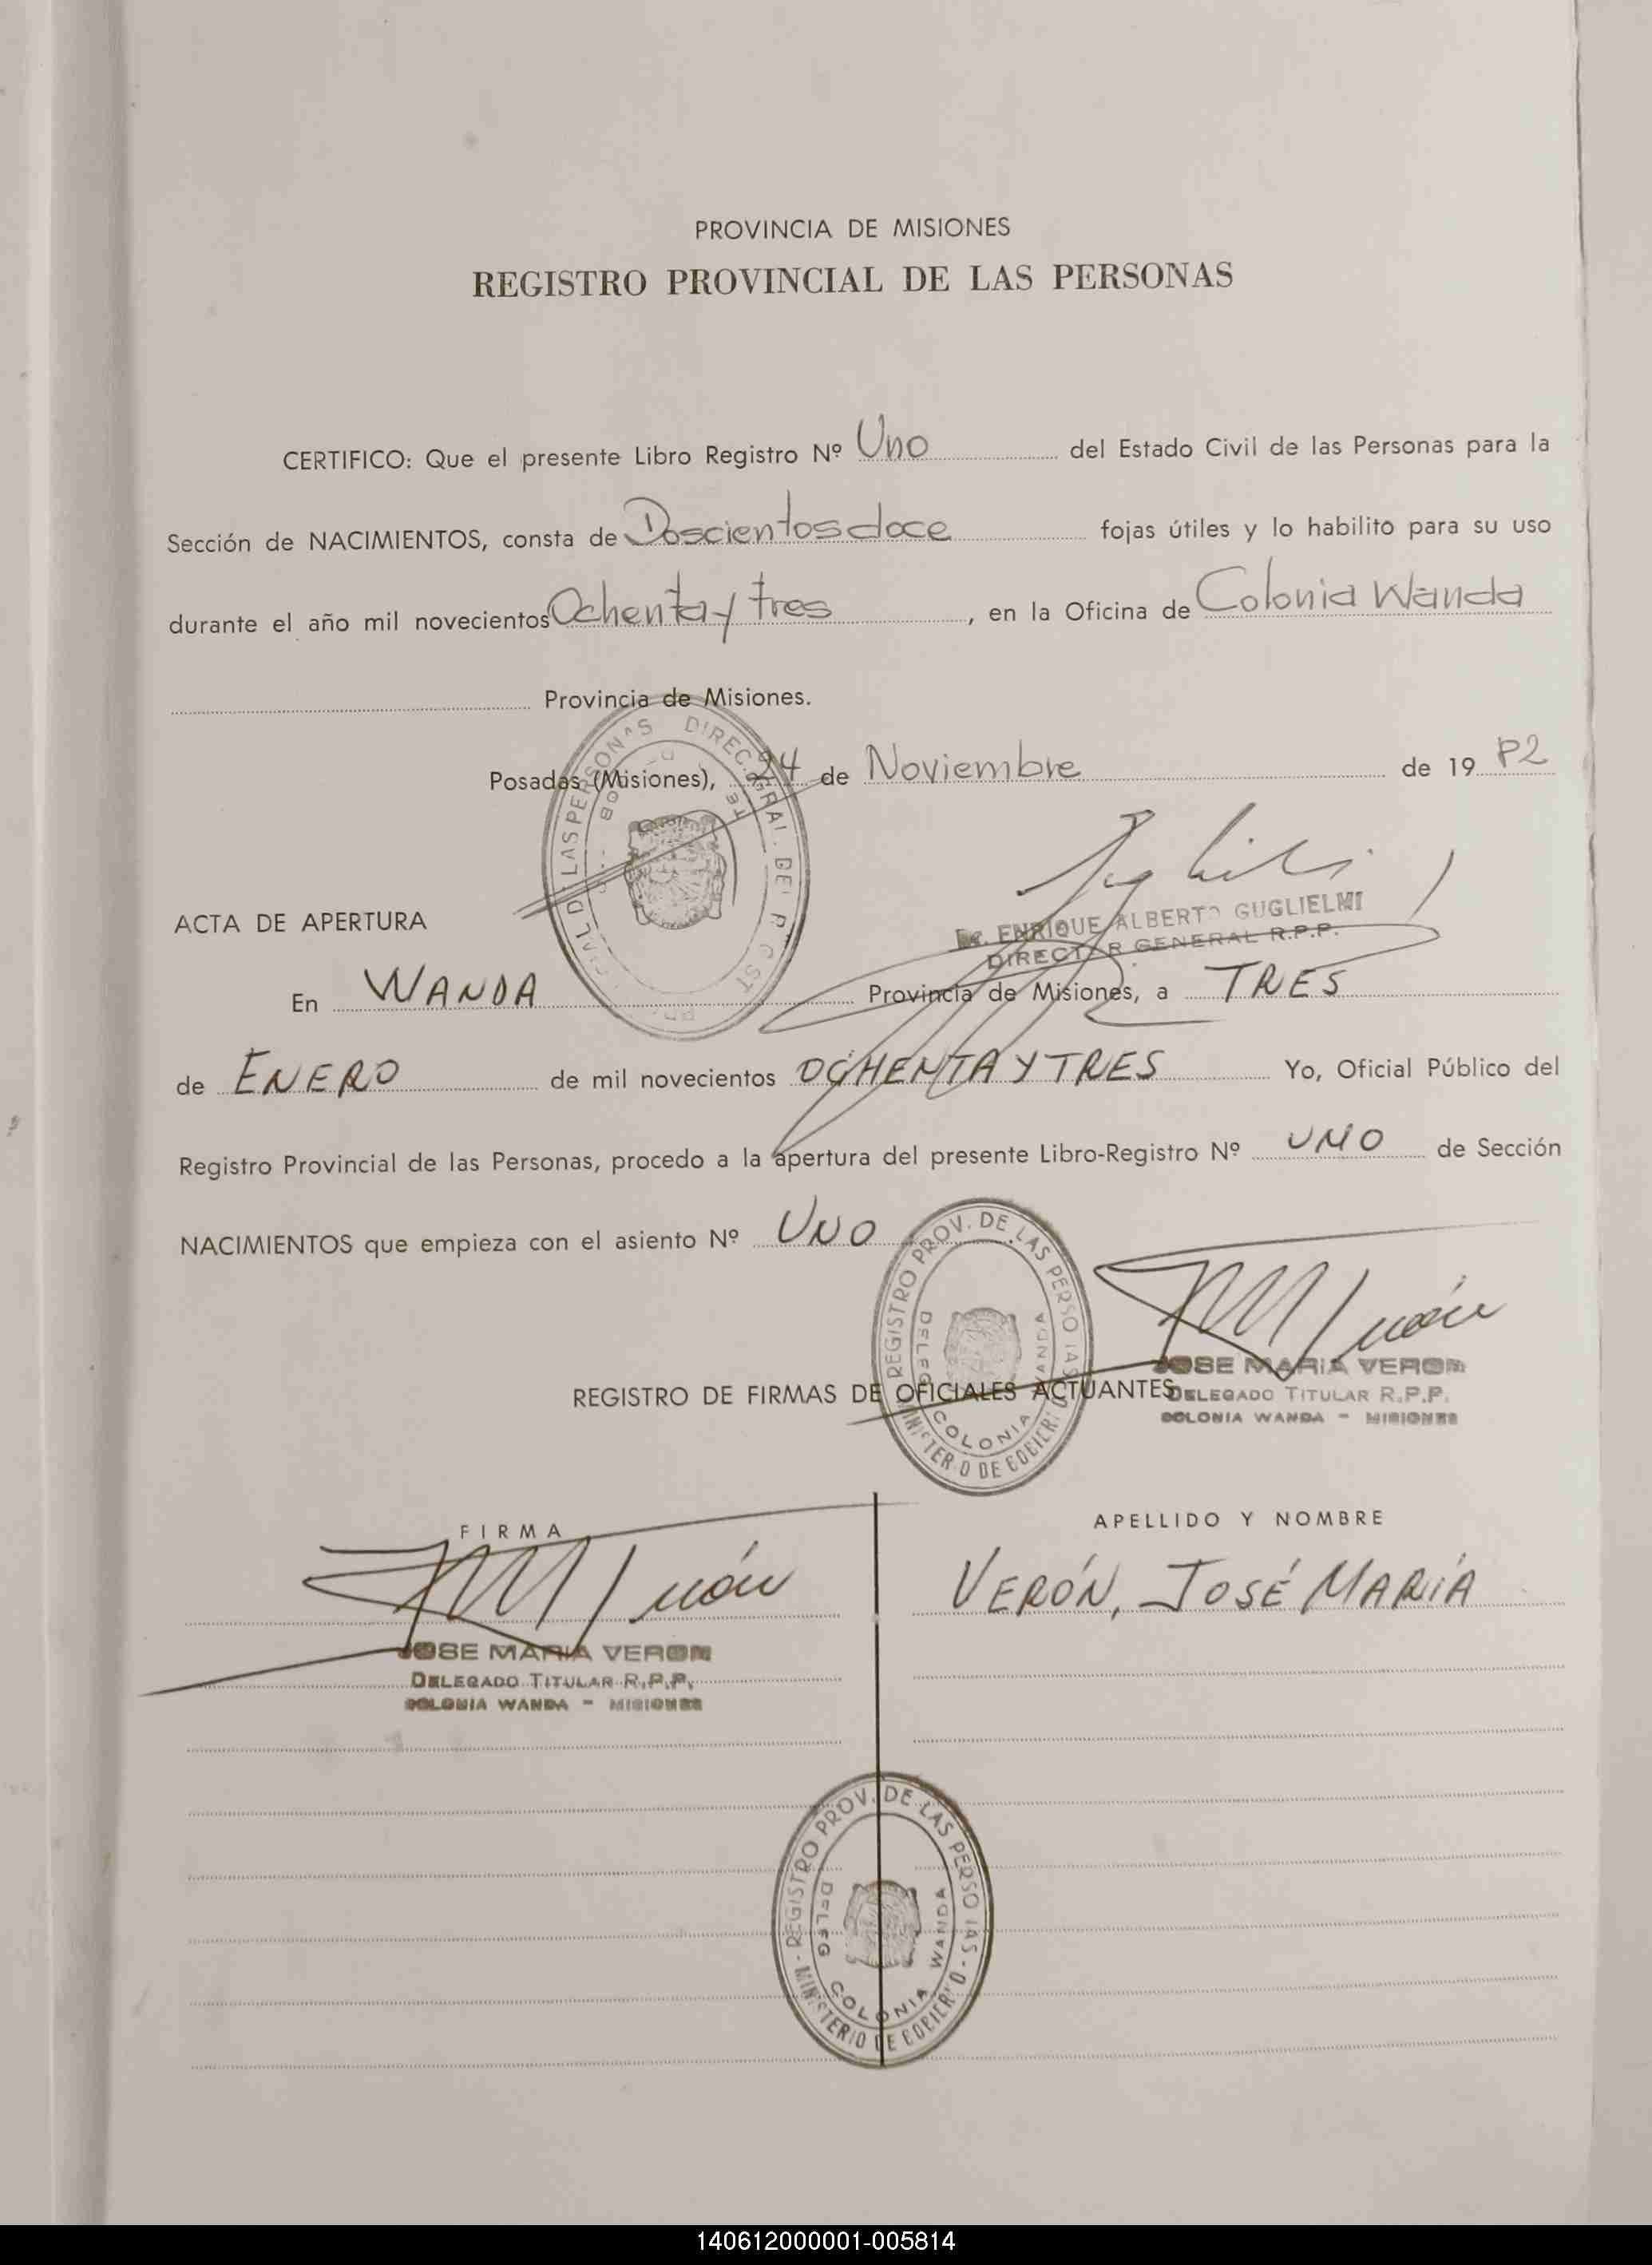 PROVINCIA DE MISIONES
REGISTRO PROVINCIAL DE LAS PERSONAS
CERTIFICO: Que el presente Libro Registro Nº Uno del Estado Civil de las Personas para la
Sección de NACIMIENTOS, consta de Doscientos doce fojas útiles y lo habilito para su uso
durante el año mil novecientos Ochenta y tres, en la Oficina de Colonia Wanda
Provincia de Misiones.
Posadas (Misiones), 24 de Noviembre de 19 82
Dr. ENRIQUE ALBERTO GUGLIELMI
DIRECTOR GENERAL R.P.P.
ACTA DE APERTURA
En WANDA Provincia de Misiones, a TRES
de ENERO de mil novecientos OCHENTA Y TRES Yo, Oficial Público del
Registro Provincial de las Personas, procedo a la apertura del presente Libro-Registro Nº UNO de Sección
NACIMIENTOS que empieza con el asiento Nº UNO
REGISTRO PROV. DE LAS PERSO AS
MINISTERIO DE GOBIERNO
DELEG COLONIA WANDA
JOSE MARIA VERON
DELEGADO TITULAR R.P.P.
COLONIA WANDA - MISIONES
REGISTRO DE FIRMAS DE OFICIALES ACTUANTES
FIRMA APELLIDO Y NOMBRE
VERÓN, JOSÉ MARÍA
JOSE MARIA VERON
DELEGADO TITULAR R.P.P.
COLONIA WANDA - MISIONES
REGISTRO PROV. DE LAS PERSO AS
MINISTERIO DE GOBIERNO
DELEG COLONIA WANDA
140612000001-005814